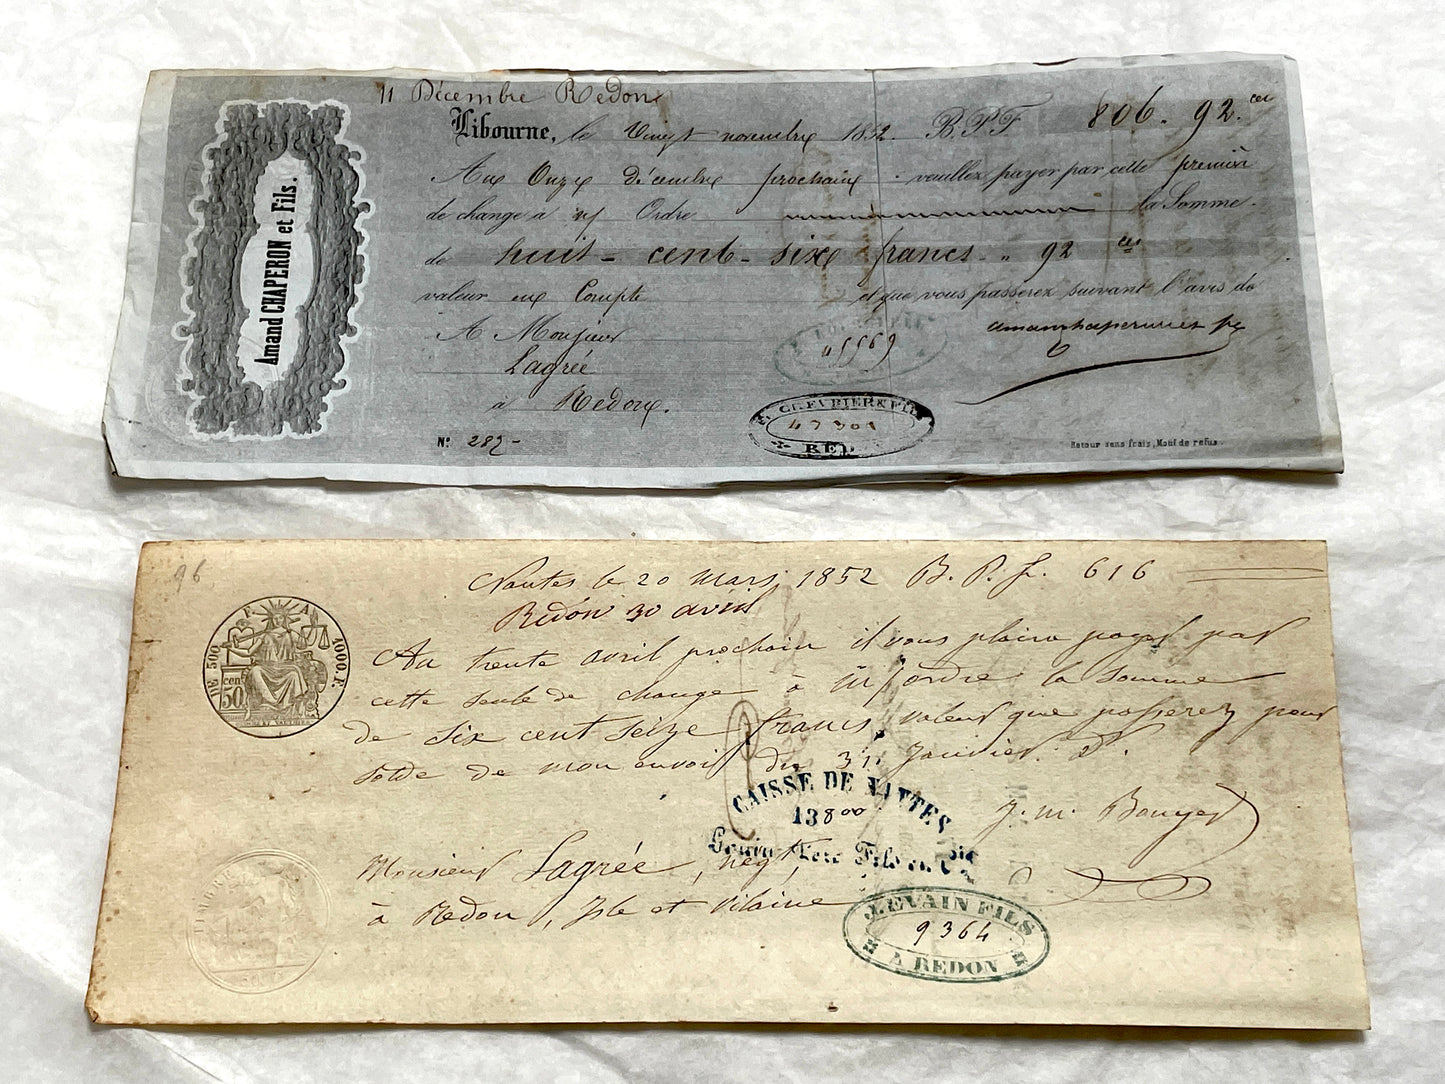 Amand CHAPERON et Fils.
11 Décembre Redon
Libourne, le Vingt novembre 1852. B.P.F 806. 92. ces
Au Onze décembre prochain veuillez payer par cette première
de change à n/ Ordre la Somme
de huit - cent - six francs - " 92 ces
valeur en Compte et que vous passerez suivant l'avis de
A Monsieur
Lagrée
à Redon.
45569
47301
RED
No 282-
Retour sans frais, Motif de refus.
96
Nantes le 20 Mars 1852 B. P. F. 616
Redon 30 avril
Au trente avril prochain il vous plaira payer par
cette seule de change à m/ ordre la somme
de Six cent Seize francs, valeur que passerez pour
solde de mon envoi du 31 Janvier. Dr.
DE 500 A 4000.F.
50 cent
CAISSE DE NANTES
13800
J. M. Bouyer
Monsieur Lagrée, négt,
à Redon, Ile et Vilaine
LEVAIN FILS
9364
A REDON